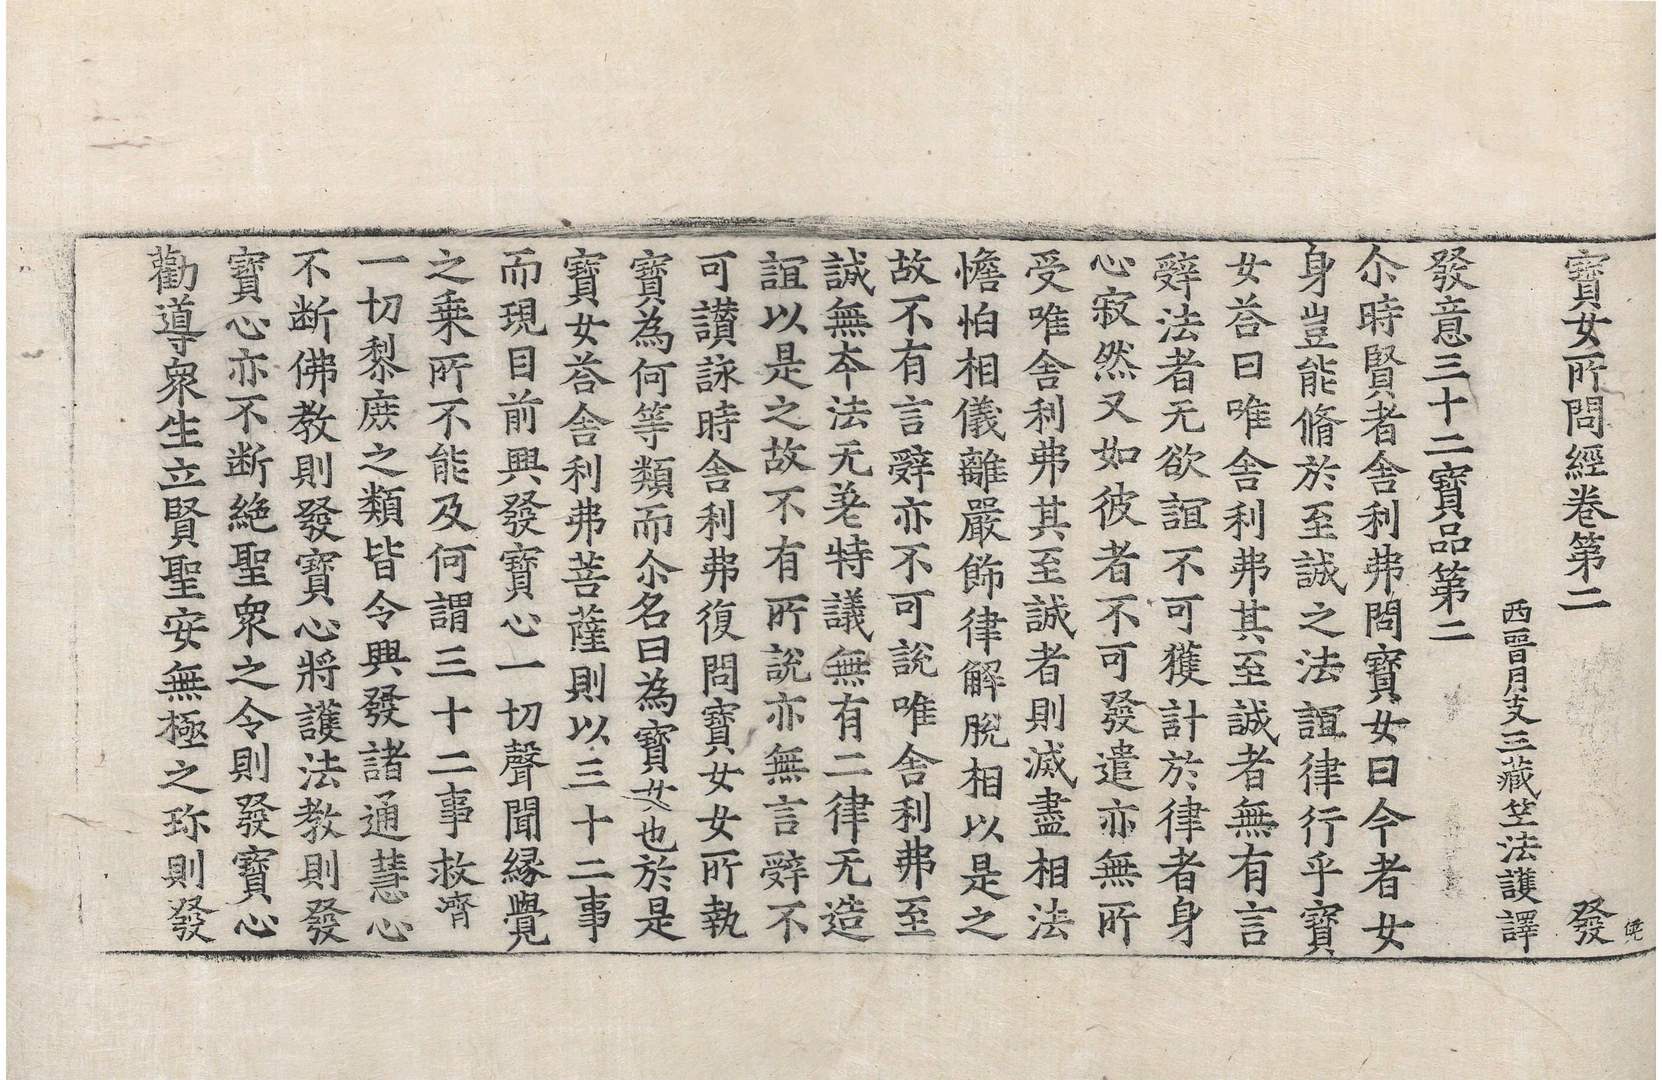 寶女所問經卷第二 發
西晉月支三藏竺法護譯
發意三十二寶品第二
尒時賢者舍利弗問寶女曰今者女
身豈能脩於至誠之法誼律行乎寶
女荅曰唯舍利弗其至誠者無有言
辤法者无欲誼不可獲計於律者身
心寂然又如彼者不可發遣亦無所
受唯舍利弗其至誠者則滅盡相法
憺怕相儀離嚴飾律解脫相以是之
故不有言辤亦不可說唯舍利弗至
誠無本法无著特議無有二律无造
誼以是之故不有所說亦無言辤不
可讃詠時舍利弗復問寶女女所執
寶為何等類而尒名曰為寶女也於是
寶女荅舍利弗菩薩則以三十二事
而現目前興發寶心一切聲聞緣覺
之乗所不能及何謂三十二事救濟
一切黎庶之類皆令興發諸通慧心
不断佛教則發寶心將護法教則發
寶心亦不断絶聖衆之令則發寶心
勸導衆生立賢聖安無極之珎則發